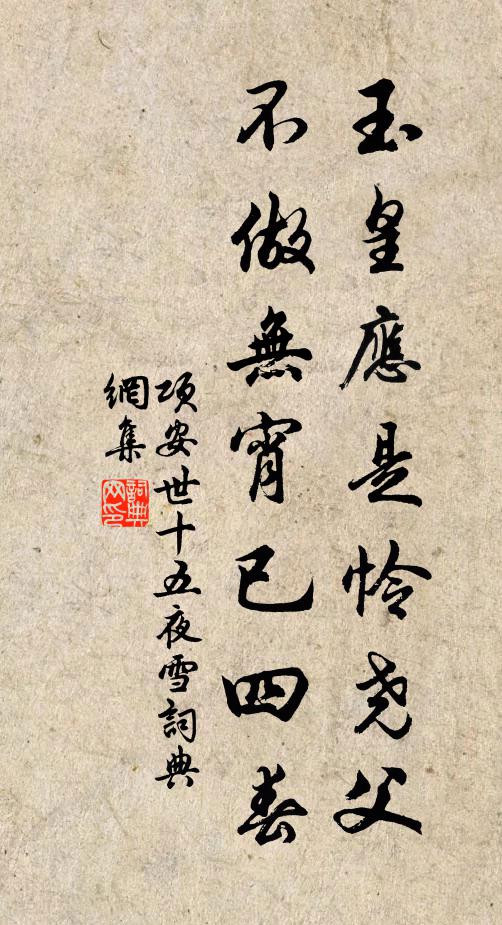 玉皇應是怜尧父
不做無宵已四春
項安世十五夜雪詞典
網集
詞典
网印